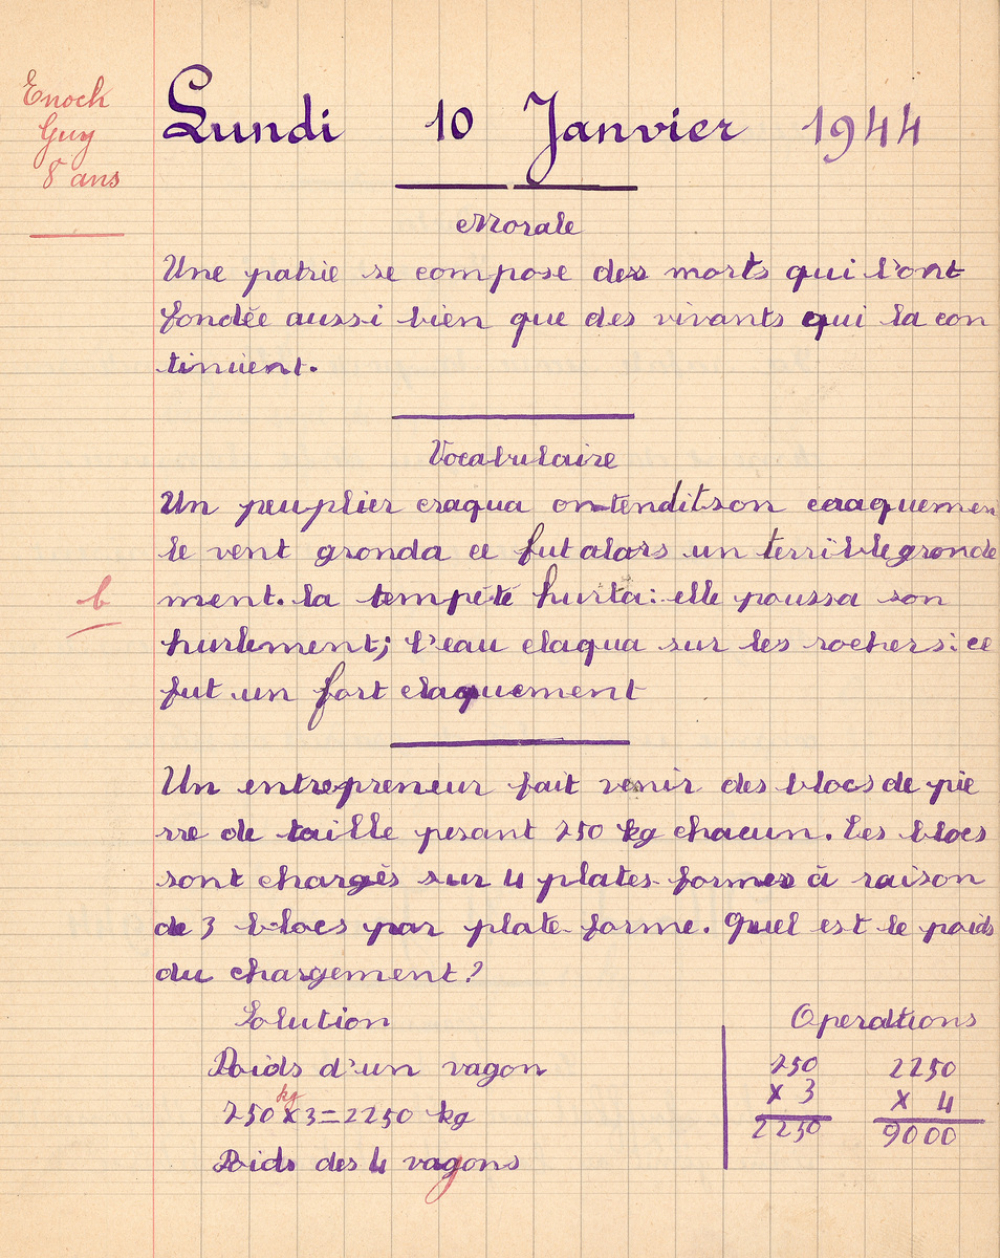 Enoch
Guy
8 ans
Lundi 10 Janvier 1944
Morale
Une patrie se compose des morts qui l'ont
fondée aussi bien que des vivants qui la con
tinuent.
Vocabulaire
Un peuplier craqua on tendit son craquemen
le vent gronda ce fut alors un terrible gronde
ment. la tempête hurla: elle poussa son
b
hurlement; l'eau claqua sur les rochers: ce
fut un fort claquement
Un entrepreneur fait venir des blocs de pie
rre de taille pesant 750 kg chacun. Les blocs
sont chargés sur 4 plates-formes à raison
de 3 blocs par plate-forme. Quel est le poids
du chargement?
Solution
Operations
Poids d'un vagon
750 2250
kg
750 x 3 = 2250 kg
x 3 x 4
2250 9000
Poids des 4 vagons